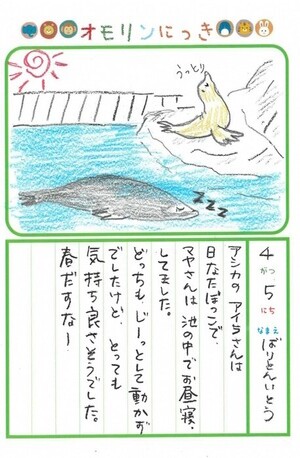 オモリンにっき
うっとり
zzz
4がつ5にち
なまえ ばりとんいとう
アシカの アイラさんは
日なたぼっこで、
マヤさんは 池の中でお昼寝。
してました。
どっちも、じーっとして動かず
でしたけど、とっても
気持ち良さそうでした。
春だすなー